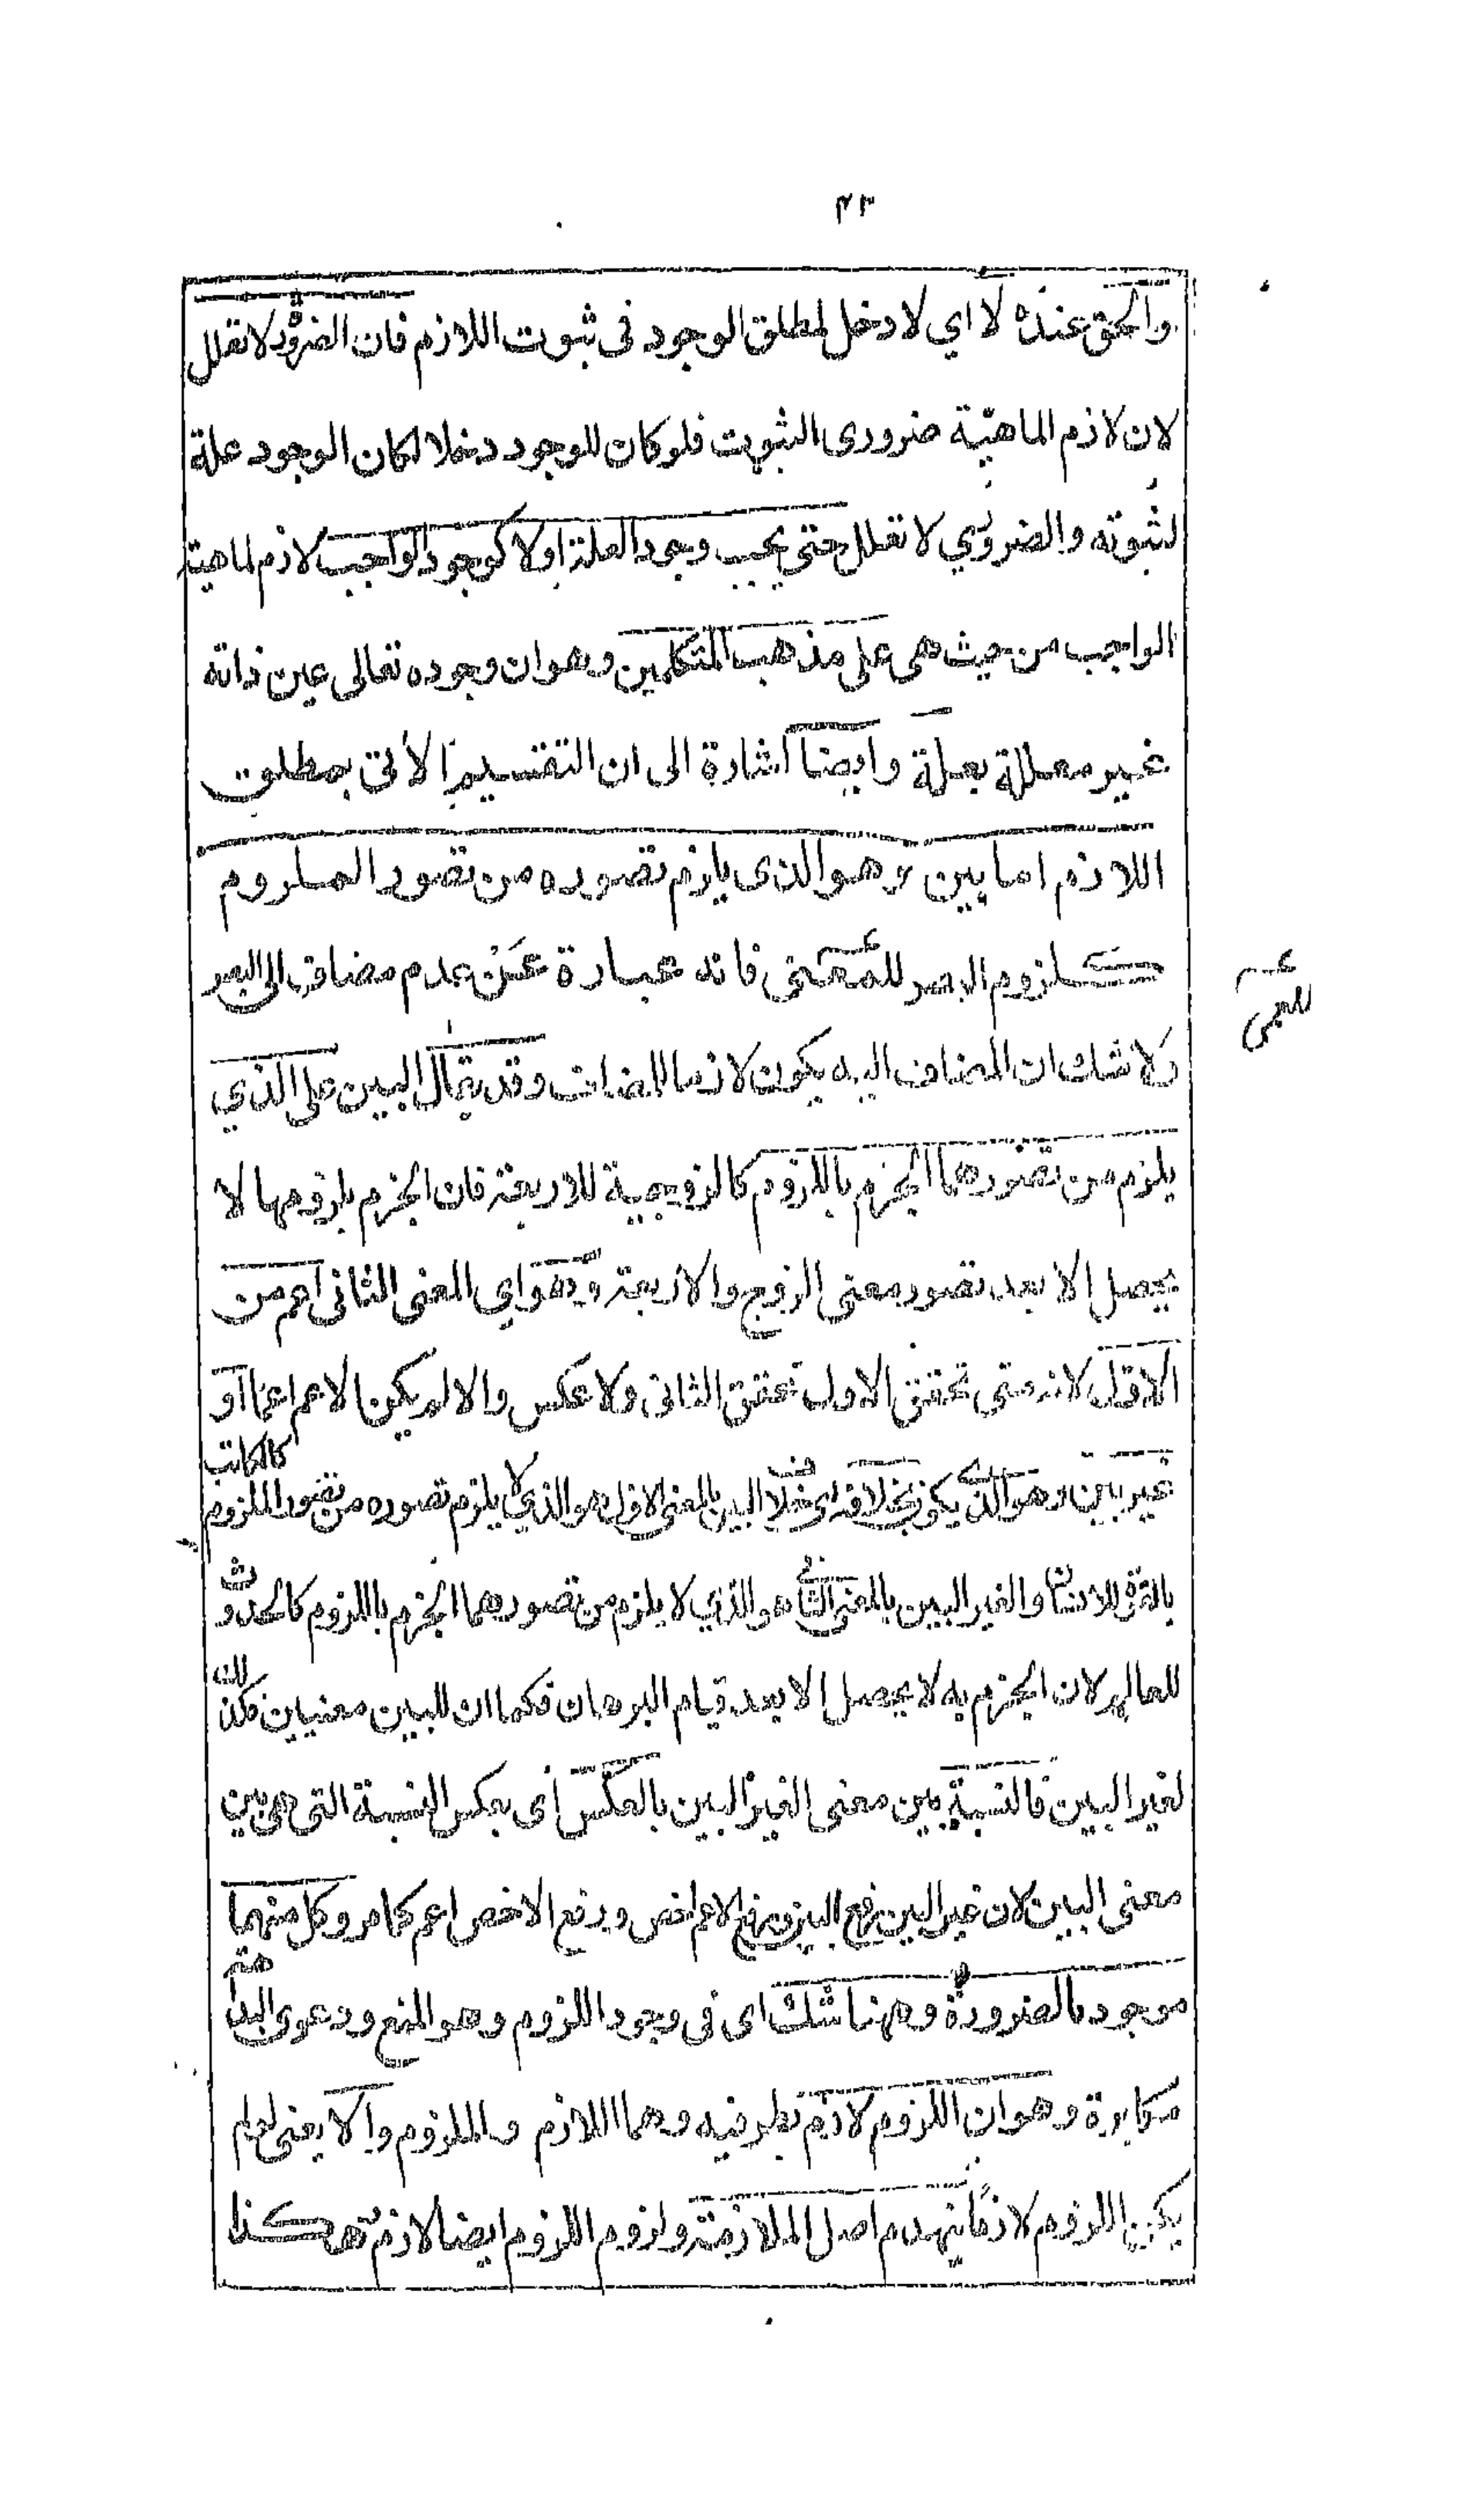 ٤٣
والحق عنده لا اي لا دخل لمطلق الوجود في ثبوت اللازم فان الضرورة لا تعلل
لان لازم الماهية ضروري الثبوت فلو كان للوجود دخلا لكان الوجود علة
لثبوته والضروري لا تعلل حتى يجب وجود العلة اولا كوجود الواجب لازم لماهية
الواجب من حيث هي على مذهب المتكلمين وهو ان وجوده تعالى عين ذاته
غير معللة بعلة وايضا اشارة الى ان التقسيم الأتى بمطلوب
اللازم اما بين وهو الذى يلزم تصوره من تصور الملزوم
كلزوم البصر للعمى فانه عبارة عن عدم مضاف الى البصر
للعمى
ولا شك ان المضاف اليه يكون لازما للمضاف وقد يقال البين على الذي
يلزم من تصورهما الجزم باللزوم كالزوجية للاربعة فان الجزم بلزومها لا
يحصل الا بعد تصور معنى الزوج والاربعة وهو اي المعنى الثانى اعم من
الاول لانه متى تحقق الاول تحقق الثانى ولا عكس والا لم يكن الاعم اعما او
غير بين وهو الذى يكون بخلافه اى بخلاف البين بالمعنى الاول هو الذي لا يلزم تصوره من تصور الملزوم كالكاتب
بالقوة للانسان والغير البين بالمعنى الثانى هو الذي لا يلزم من تصورهما الجزم باللزوم كالحدوث
للعالم لان الجزم به لا يحصل الا بعد قيام البرهان فكما ان للبين معنيين فكذلك
لغير البين فالنسبة بين معنى الغير البين بالعكس أى بعكس النسبة التى هى بين
معنى البين لان غير البين رفع البين ورفع الاعم اخص ورفع الاخص اعم كما مر وكل منهما
موجود بالضرورة وههنا شك اى فى وجود اللزوم وهو المنع ودعوى البداهة
مكابرة وهو ان اللزوم لازم بطرفيه وهما اللازم والملزوم والا يعنى لو لم
يكن اللزوم لازمًا ينهدم اصل الملازمة ولزوم اللزوم ايضا لازم وهكذا